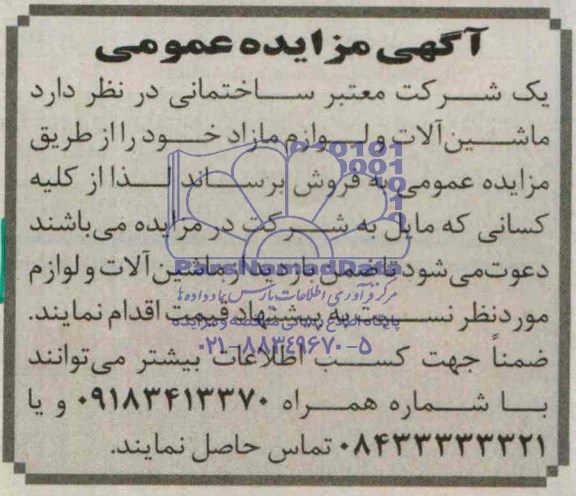 آگهی مزایده عمومی
یک شرکت معتبر ساختمانی در نظر دارد
ماشین‌آلات و لوازم مازاد خود را از طریق
مزایده عمومی به فروش برساند لذا از کلیه
کسانی که مایل به شرکت در مزایده می‌باشند
دعوت می‌شود تا ضمن بازدید از ماشین‌آلات و لوازم
ParsNamadData
مرکز فرآوری اطلاعات پارس نماد داده‌ها
مورد نظر نسبت به پیشنهاد قیمت اقدام نمایند.
پایگاه اطلاع رسانی مناقصه و مزایده
۰۲۱-۸۸۳۴۹۶۷۰-۵
ضمناً جهت کسب اطلاعات بیشتر می‌توانند
با شماره همراه ۰۹۱۸۳۴۱۳۳۷۰ و یا
۰۸۴۳۳۳۳۳۳۲۱ تماس حاصل نمایند.